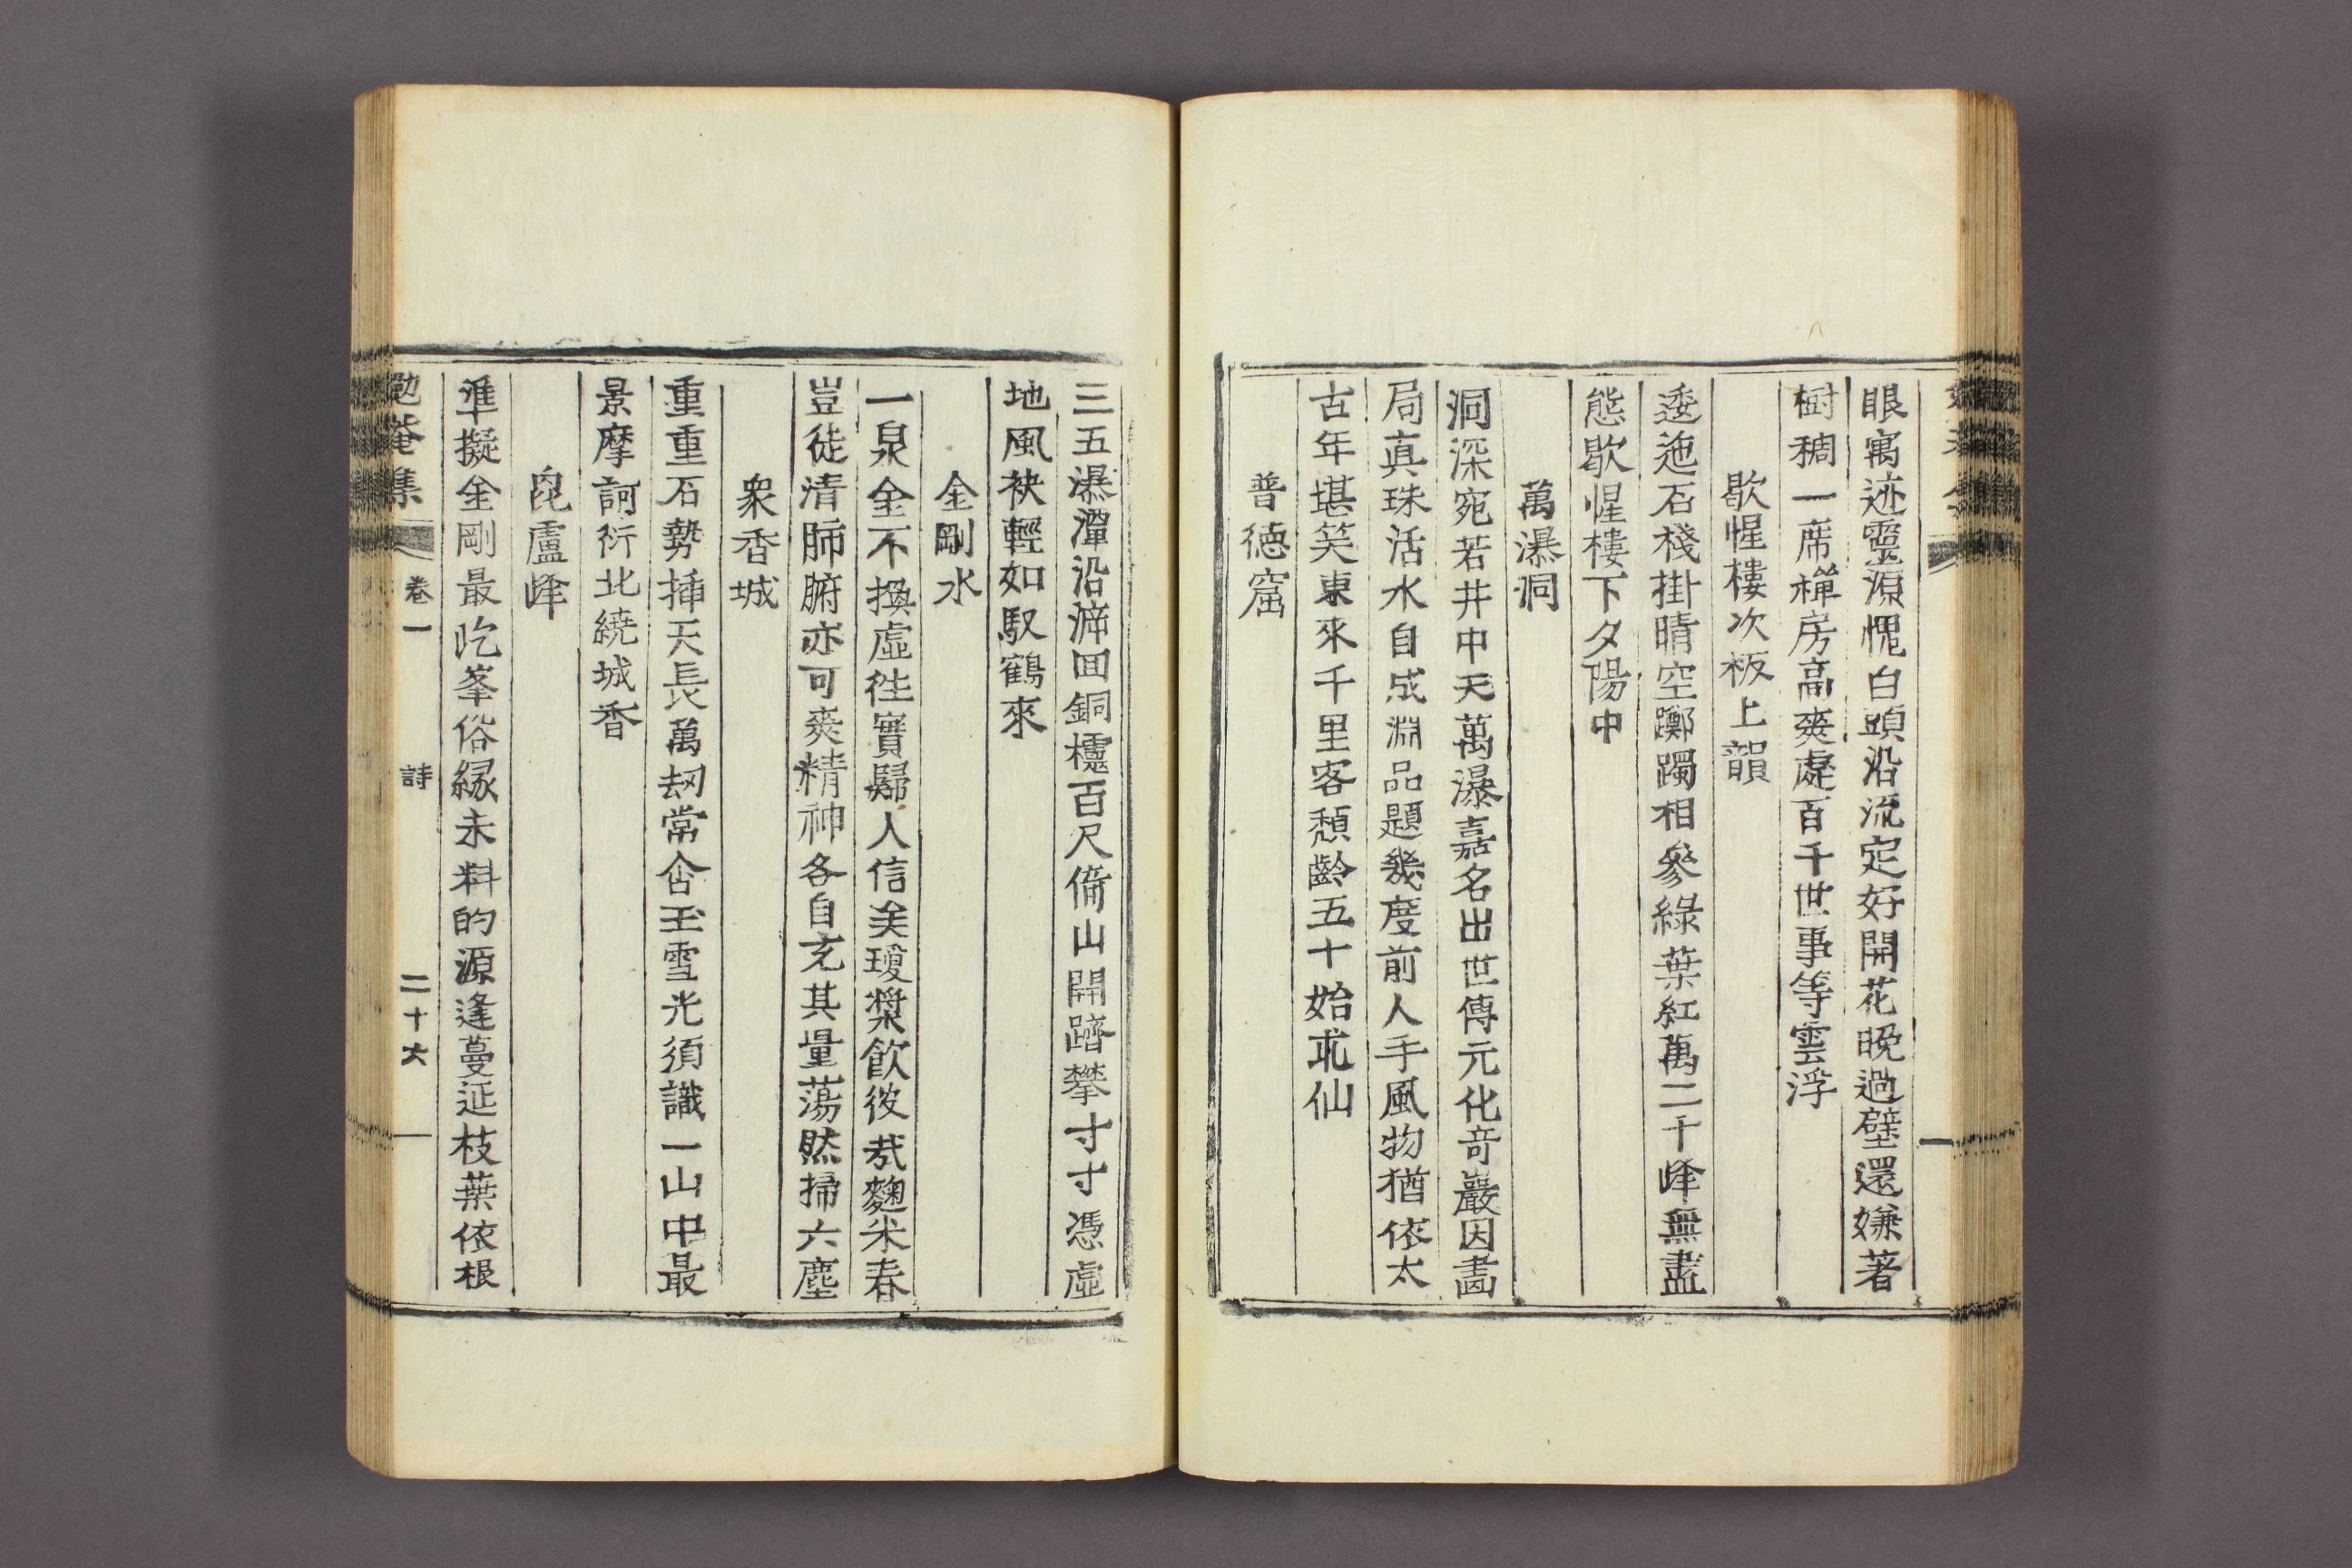 眼寓迹靈源愧白頭沿流定好開花晚過壁還嫌著
樹稠一席禪房高爽處百千世事等雲浮
歇惺樓次板上韻
逶迤石棧掛晴空躑躅相參綠葉紅萬二千峰無盡
態歇惺樓下夕陽中
萬瀑洞
洞深宛若井中天萬瀑嘉名出世傳元化竒巖因畵
局真珠活水自成淵品題幾度前人手風物猶依太
古年堪笑東來千里客頹齡五十始求仙
普德窟
三五瀑潭沿溯回銅欞百尺倚山開躋攀寸寸憑虛
地風袂輕如馭鶴來
金剛水
一泉金不換虛徃實歸人信矣瓊漿飲彼㢤麴米春
豈徒清肺腑亦可爽精神各自充其量蕩然掃六塵
衆香城
重重石勢揷天長萬刼常含玉雪光須識一山中最
景摩訶衍北繞城香
毘盧峰
準擬金剛最屹峯俗緣未料的源逢蔓延枝葉依根
勉菴集
卷一
詩
二十六